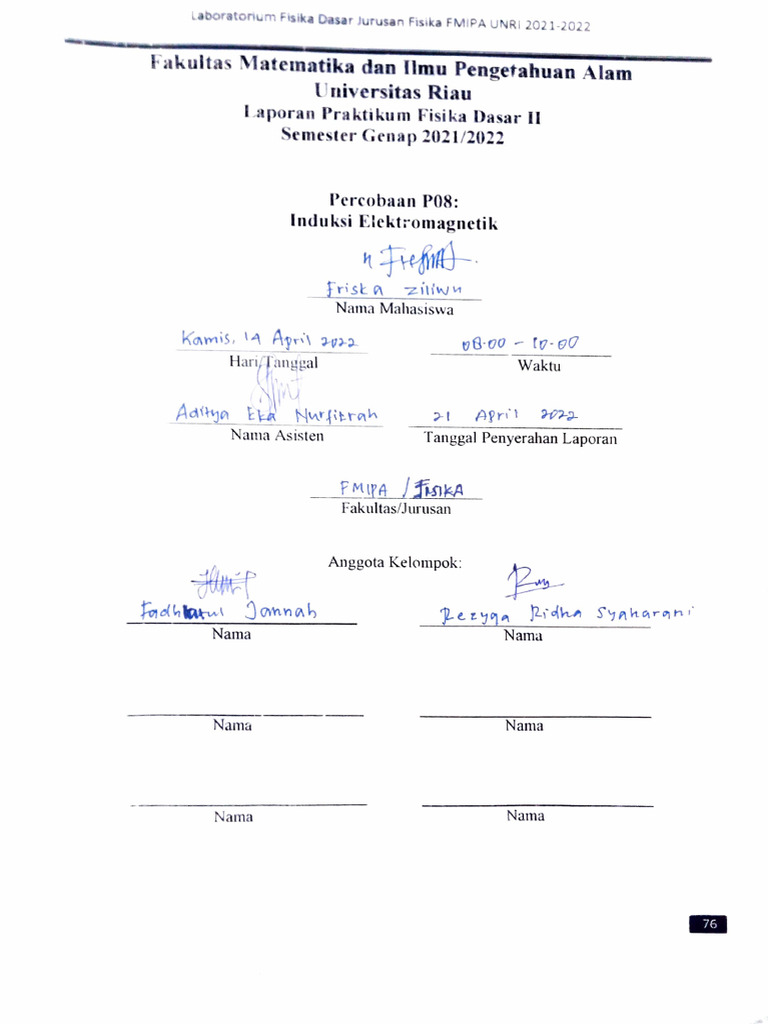 Laboratorium Fisika Dasar Jurusan Fisika FMIPA UNRI 2021-2022
Fakultas Matematika dan Ilmu Pengetahuan Alam
Universitas Riau
Laporan Praktikum Fisika Dasar II
Semester Genap 2021/2022
Percobaan P08:
Induksi Elektromagnetik
Friska Ziliwu
Nama Mahasiswa
Kamis, 14 April 2022 08.00 - 10.00
Hari/Tanggal Waktu
Aditya Eka Nurfikrah 21 April 2022
Nama Asisten Tanggal Penyerahan Laporan
FMIPA / FISIKA
Fakultas/Jurusan
Anggota Kelompok:
Jannah Rezyqa Ridha Syaharani
Nama Nama
Nama Nama
Nama Nama
76